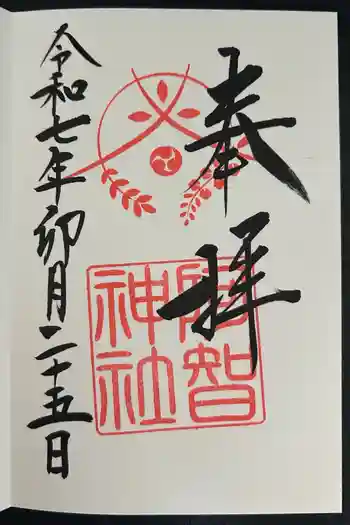 奉拝
阿智神社
令和七年卯月二十五日